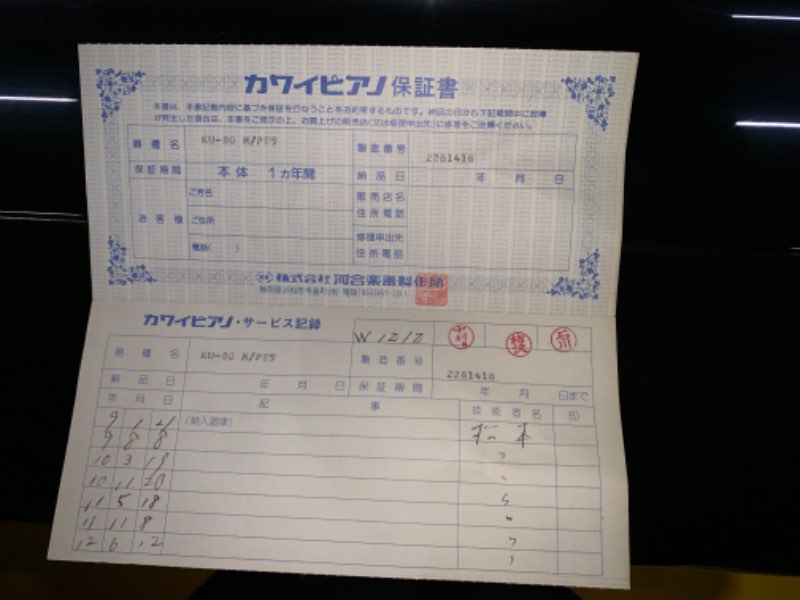 カワイピアノ 保証書
本書は、本書記載内容に基づき保証を行なうことをお約束するものです。納品の日から下記期間中に故障
が発生した場合は、本書をご提示の上、お買上げの販売店(又は修理申出先)に修理をご依頼ください。
器種名 KU-80 M/PEラ 製造番号 2281418
保証期間 本体 1ヵ年間 納品日 年 月 日
お客様 ご芳名 販売店名
住所電話
ご住所
修理申出先
電話( ) 住所電話
株式会社 河合楽器製作所
カワイピアノ・サービス記録
W1212 中村 石川
器種名 KU-80 M/PEラ 製造番号 2281418
納品日 年 月 日 保証期間 年 月 日まで
年 月 日 記 事 技術者名 印
9 1 21 (納入調律)
9 8 8
10 3 19
10 11 20
11 5 18
11 11 8
12 6 12